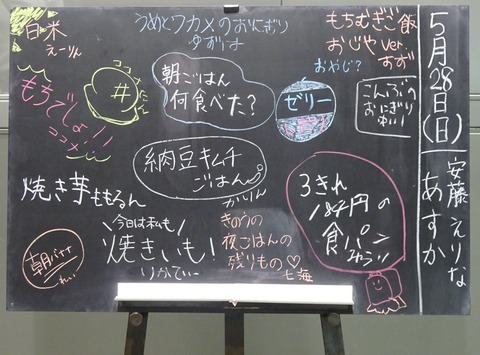 5月28日(日)
安藤えりな
あすか
もちむぎご飯
おじやver.
すず
おやじ?
うめとワカメのおにぎり
ゆずりは
白米
えーりん
ココナ
#
もちでしょ!!
ココメ
朝ごはん
何食べた?
ゼリー
こんぶの
おにぎり
納豆キムチ
ごはん
かりん
焼き芋ももるん
今日は私も
焼きいも!
りかてぃー
きのうの
夜ごはんの
残りもの♡
七海
3きれ
184円の
食パン
みゅう
朝バナナ
れい